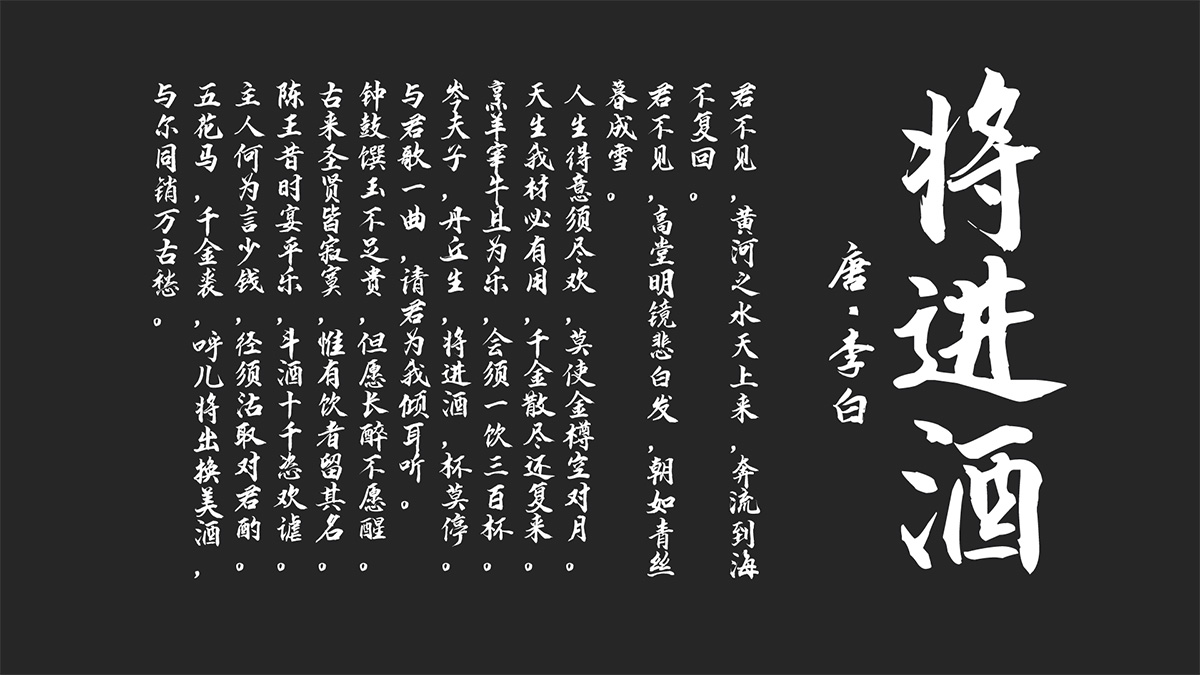 将进酒
唐·李白
君不见,黄河之水天上来,奔流到海
不复回。
君不见,高堂明镜悲白发,朝如青丝
暮成雪。
人生得意须尽欢,莫使金樽空对月。
天生我材必有用,千金散尽还复来。
烹羊宰牛且为乐,会须一饮三百杯。
岑夫子,丹丘生,将进酒,杯莫停。
与君歌一曲,请君为我倾耳听。
钟鼓馔玉不足贵,但愿长醉不愿醒。
古来圣贤皆寂寞,惟有饮者留其名。
陈王昔时宴平乐,斗酒十千恣欢谑。
主人何为言少钱,径须沽取对君酌。
五花马,千金裘,呼儿将出换美酒,
与尔同销万古愁。